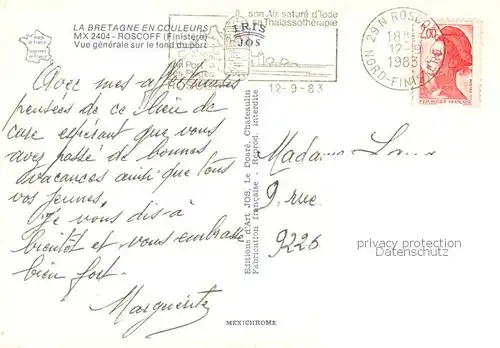 LA BRETAGNE EN COULEURS
MX 2404 - ROSCOFF (Finistère)
Vue générale sur le fond du port
IRIS
JOS
son Air saturé d'Iode
Thalassothérapie
Port
12-9-83
29 N ROSCOFF
18H
12-9
1983
NORD-FINISTERE
2,00
REPUBLIQUE FRANÇAISE
Avec mes affectueuses
pensées de ce lieu de
cure espérant que vous
avez passé de bonnes
vacances ainsi que tous
vos jeunes.
Je vous dis à
bientôt et vous embrasse
bien fort.
Marguerite
Editions d'Art JOS, Le Doaré, Chateaulin
Fabrication française - Reprod. interdite
Madame
9, rue
9226
privacy protection
Datenschutz
MEXICHROME